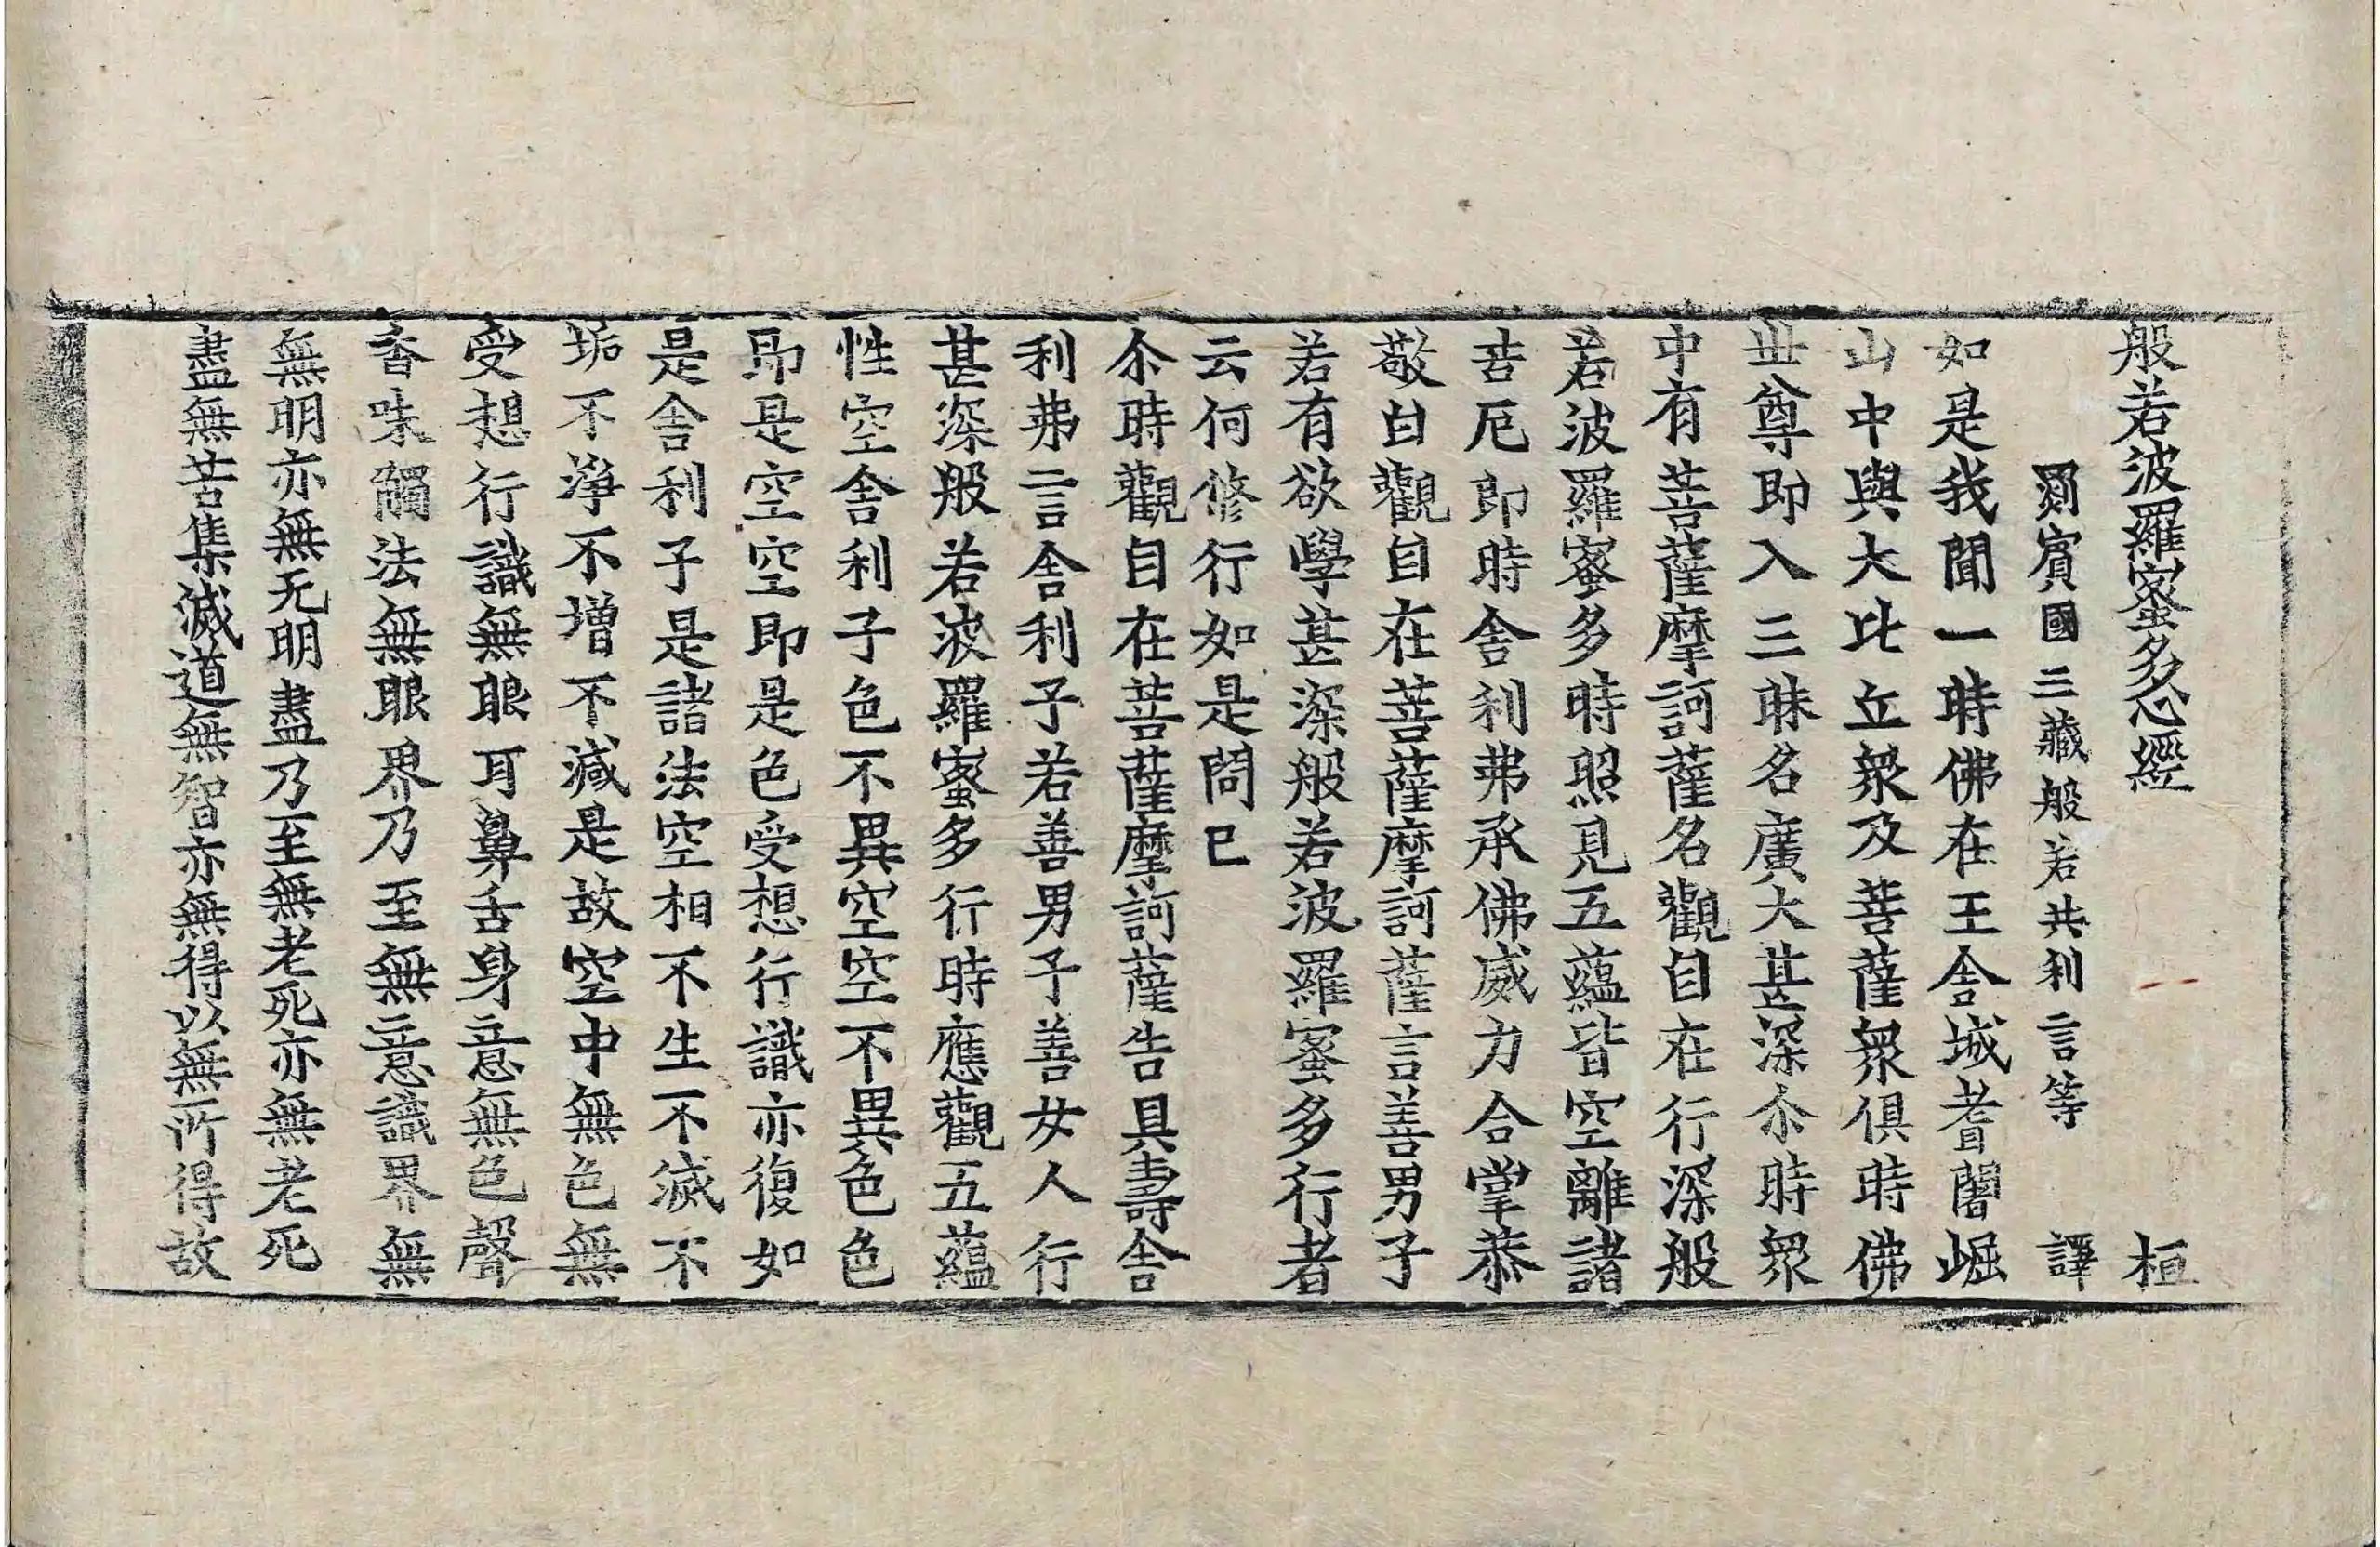 般若波羅蜜多心經 桓
罽賓國三藏般若共利言等 譯
如是我聞一時佛在王舍城耆闍崛
山中與大比丘衆及菩薩衆俱時佛
世尊即入三昧名廣大甚深尒時衆
中有菩薩摩訶薩名觀自在行深般
若波羅蜜多時照見五蘊皆空離諸
苦厄即時舍利弗承佛威力合掌恭
敬白觀自在菩薩摩訶薩言善男子
若有欲學甚深般若波羅蜜多行者
云何修行如是問已
尒時觀自在菩薩摩訶薩告具壽舍
利弗言舍利子若善男子善女人行
甚深般若波羅蜜多行時應觀五蘊
性空舍利子色不異空空不異色色
即是空空即是色受想行識亦復如
是舍利子是諸法空相不生不滅不
垢不淨不增不減是故空中無色無
受想行識無眼耳鼻舌身意無色聲
香味觸法無眼界乃至無意識界無
無明亦無无明盡乃至無老死亦無老死
盡無苦集滅道無智亦無得以無所得故